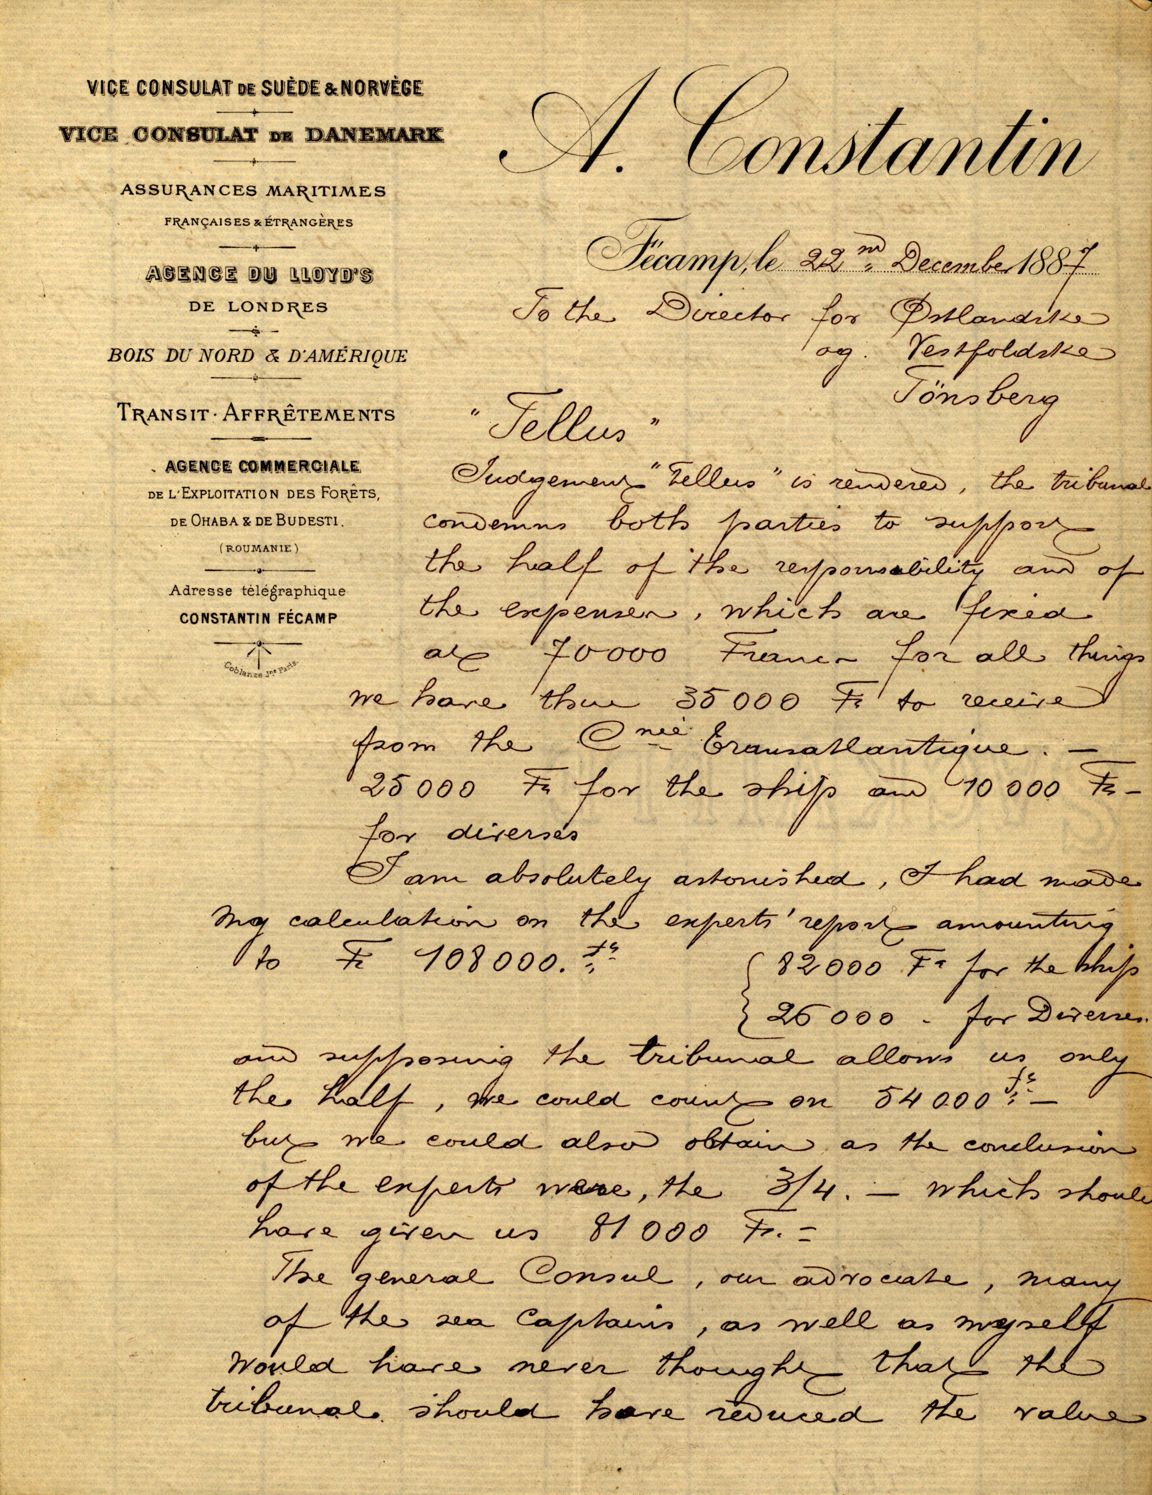 VICE CONSULAT DE SUÈDE & NORVÈGE
VICE CONSULAT DE DANEMARK
ASSURANCES MARITIMES
FRANÇAISES & ÉTRANGÈRES
AGENCE DU LLOYD'S
DE LONDRES
BOIS DU NORD & D'AMÉRIQUE
TRANSIT · AFFRÊTEMENTS
AGENCE COMMERCIALE
DE L'EXPLOITATION DES FORÊTS,
DE OHABA & DE BUDESTI.
(ROUMANIE)
Adresse télégraphique
CONSTANTIN FÉCAMP
Coblanze Jne Paris.
A. Constantin
Fécamp, le 22nd December 1887
To the Director for Østlandske
og. Vestfoldske
Tönsberg
"Tellus"
Judgement "Tellus" is rendered, the tribunal
condemns both parties to support
the half of the responsability and of
the expenses, which are fixed
at 70000 Francs for all things
we have thus 35000 Fr to receive
from the Cnie Transatlantique. —
25000 Fr for the ship and 10000 Fr —
for diverses
I am absolutely astonished, I had made
my calculation on the experts' report amounting
to Fr 108000. fs
{ 82000 Fr for the ship
26000 - for Diverses.
and supposing the tribunal allows us only
the half, we could count on 54000 fs —
but we could also obtain as the conclusion
of the experts were, the 3/4. — which should
have given us 81000 Fr. =
The general Consul, our advocate, many
of the sea Captains, as well as myself
would have never thought that the
tribunal should have reduced the value